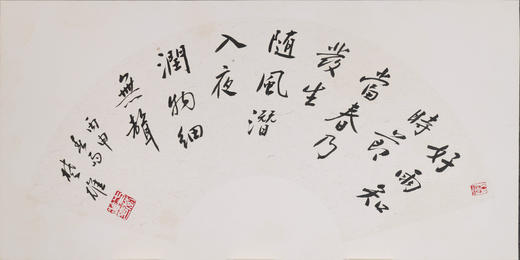 好雨知
時節
當春乃
發生
随風潛
入夜
潤物細
無聲
丙申
楚雄